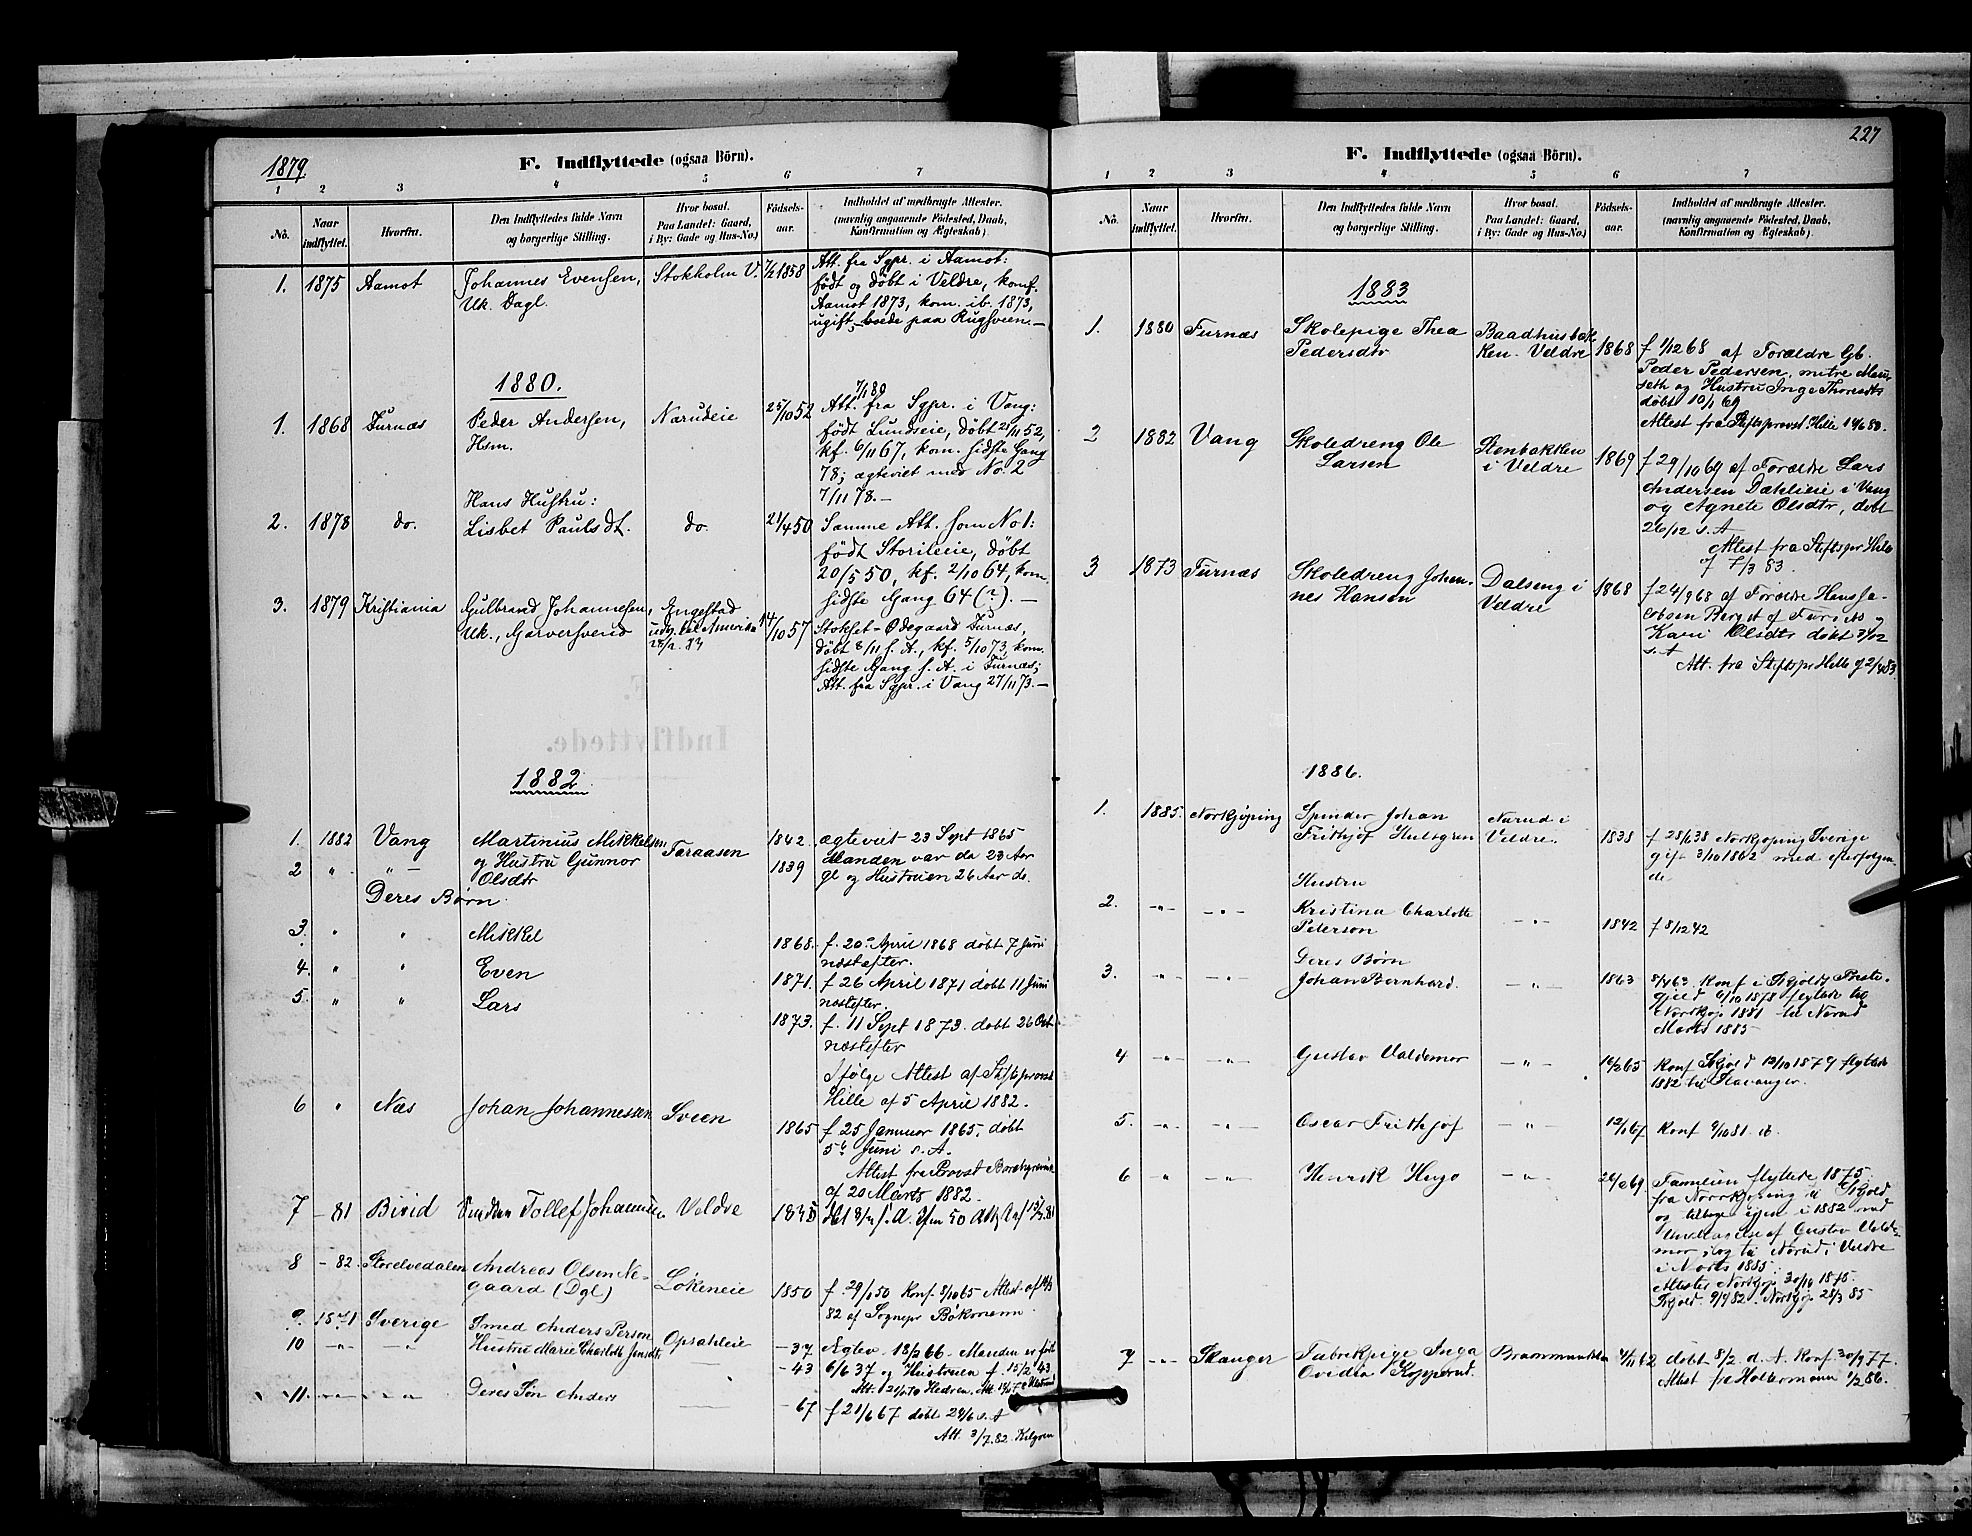 1879
F. Indflyttede (ogsaa Börn).
1 2 3 4 5 6 7
No. Naar indflyttet. Hvorfra. Den Indflyttedes fulde Navn og borgerlige Stilling. Hvor bosat. Paa Landet: Gaard, i By: Gade og Hus-No.) Födsels-aar. Indholdet af medbragte Attester. (navnlig angaaende Födested, Daab, Konfirmation og Ægteskab).
1. 1875 Aamot Johannes Evensen, Stokholm V. 7/2 1858 Att. fra Sgpr. i Aamot:
Uk. Dagl. født og døbt i Veldre, konf.
Aamot 1873, kom. ib. 1873,
ugift, boede paa Rugsveen. —
1880.
7/1 80
1. 1868 Furnæs Peder Andersen, Narudeie 25/10 52 Att. fra Sgpr. i Vang:
Hsm. født Lundseie, døbt 25/11 52,
kf. 6/11 67, kom. sidste Gang
78; ægteviet med No. 2
7/11 78. —
Hans Hustru:
2. 1878 do. Lisbet Paulsdt. do. 21/4 50 Samme Att. som No 1:
født Storileie, døbt
20/5 50, kf. 2/10 64, kom.
sidste Gang 64 (?). —
3. 1879 Kristiania Gulbrand Johannesen, Engestad 14/10 57 Stokset-Ødegaard Furnæs,
Uk., Garversvend udg. til Amerika døbt 8/11 s. A., kf. 5/10 73, kom.
sidste Gang s. A. i Furnæs;
Att. fra Sgpr. i Vang 27/11 73. —
1882
1. 1882 Vang Martinius Mikkelsen Faraasen 1842 ægteviet 23 Sept 1865
2 " " og Hustru Gunnor 1839 Manden var da 23 Aar
Olsdtr gl og Hustruen 26 Aar do.
Deres Børn.
3. " " Mikkel 1868. f. 20 April 1868 døbt 7 Juni
næstefter.
4. " " Even 1871. f 26 April 1871 døbt 11 Juni
næstefter.
5. " " Lars 1873. f. 11 Sept 1873. døbt 26 Oct
næstefter
Ifølge Attest af Stiftsprovst
Hille af 5 April 1882.
6 " Næs Johan Johannessen Sveen 1865 f 25 Januar 1865, døbt
5 Juni s. A.
Attest fra Provst
af 20 Marts 1882.
7 - 81 Birid Tollef Johannesen Veldre
8 - 82. Storelvedalen Andreas Olsen Ne- Løkeneie 1850 f. 29/1 50 Konf. 8/10 65 Attest af
gaard (Dgl) 82 af Sognepr Bøkmann.
9. Sverige Smed Anders Person Opsahleie - 37 Ægtev. 18/2 66. Manden er født
10 -"- -"- Hustru Marie Charlotte - 43 6/6 37 og Hustruen f. 15/2 43
11. Deres Søn Anders - 67 f 21/6 67 døbt 24/6 s. A
Att. 3/7. 82.
227
F. Indflyttede (ogsaa Börn).
1 2 3 4 5 6 7
No. Naar indflyttet. Hvorfra. Den Indflyttedes fulde Navn og borgerlige Stilling. Hvor bosat. Paa Landet: Gaard, i By: Gade og Hus-No.) Födsels-aar. Indholdet af medbragte Attester. (navnlig angaaende Födested, Daab, Konfirmation og Ægteskab).
1883
1. 1880 Furnæs Skolepige Thea Baadhusbak-
Pedersdtr ken. Veldre 1868 f 1/12 68 af Forældre Gb.
Peder Pedersen,
og Hustru Inge
døbt 10/1 69
Attest fra Stiftsprovst Hille
2 1882 Vang Skoledreng Ole Stenbakken
Larsen i Veldre 1869 f 29/10 69 af Forældre Lars
Andersen Dæhlieie i Vang
og Agnete Olsdtr, døbt
26/12 s. A
Attest fra Stiftspr Hille
7/3 83.
3 1873 Furnæs Skoledreng Johan- Dalseng i 1868 f 24/9 68 af Forældre Hans Ja-
nes Hansen Veldre cobsen Berget af Furnæs og
Kari Olsdtr døbt
s. A
Att. fra Stiftspr Hille
1886.
1. 1885. Norkjøping Spinder Johan Narud i
Frithjof Hultgren Veldre. 1838 f 28/6 38 Norkjøping Sverige
gift 3/10 1862 med efterfølgen-
de
Hustru
2. -"- -"- Kristina Charlotte -"- 1842 f 8/12 42
Peterson
Deres Børn
3. -"- -"- Johan Bernhard. -"- 1863 8/4 63. Konf i Skjold Præste-
gjeld 6/10 1878 flyttede til
Norrkjøp 1881 til Narud
Marts 1885
4 -"- -"- Gustav Valdemar -"- Konf Skjold 12/10 1879 flyttede
1882 til Stavanger.
5. -"- -"- Oscar Frithjof -"- Konf
6 " -"- Henrik Hugo -"- 69 Familien flyttede 1875
fra Norrkjøping til Skjold
og tilbage igjen i 1882 med
Undtagelse af Gustav Valde-
mar, og til Narud i Veldre
i Marts 1885.
Attester Norrkjøp 30/10 1875.
Skjold 9/9 82. Norrkjøp 28/3 85
7 -"- Stange Fabrikpige Inga
Ovidia døbt 8/2 d. A. Konf 30/9 77.
Attest fra 1/2 86.